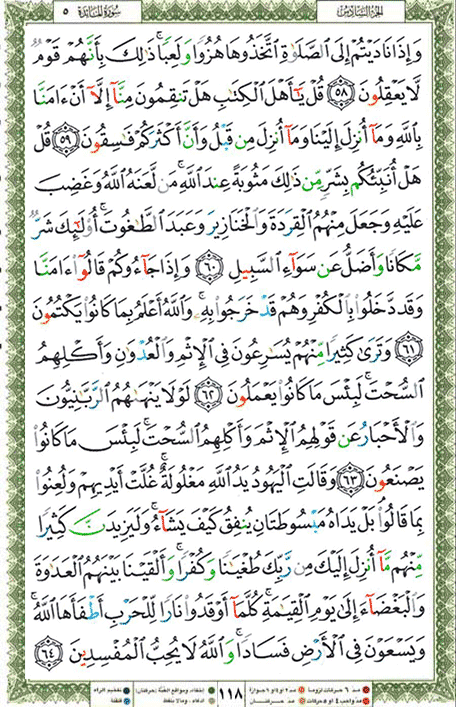 الجزء السادس سورة المائدة ٥
وَإِذَا نَادَيْتُمْ إِلَى ٱلصَّلَوٰةِ ٱتَّخَذُوهَا هُزُوًا وَلَعِبًا ۚ ذَٰلِكَ بِأَنَّهُمْ قَوْمٌ
لَّا يَعْقِلُونَ ﴿٥٨﴾ قُلْ يَٰٓأَهْلَ ٱلْكِتَٰبِ هَلْ تَنقِمُونَ مِنَّآ إِلَّآ أَنْ ءَامَنَّا
بِٱللَّهِ وَمَآ أُنزِلَ إِلَيْنَا وَمَآ أُنزِلَ مِن قَبْلُ وَأَنَّ أَكْثَرَكُمْ فَٰسِقُونَ ﴿٥٩﴾ قُلْ
هَلْ أُنَبِّئُكُم بِشَرٍّ مِّن ذَٰلِكَ مَثُوبَةً عِندَ ٱللَّهِ ۚ مَن لَّعَنَهُ ٱللَّهُ وَغَضِبَ
عَلَيْهِ وَجَعَلَ مِنْهُمُ ٱلْقِرَدَةَ وَٱلْخَنَازِيرَ وَعَبَدَ ٱلطَّٰغُوتَ ۚ أُو۟لَٰٓئِكَ شَرٌّ
مَّكَانًا وَأَضَلُّ عَن سَوَآءِ ٱلسَّبِيلِ ﴿٦٠﴾ وَإِذَا جَآءُوكُمْ قَالُوٓا۟ ءَامَنَّا
وَقَد دَّخَلُوا۟ بِٱلْكُفْرِ وَهُمْ قَدْ خَرَجُوا۟ بِهِۦ ۚ وَٱللَّهُ أَعْلَمُ بِمَا كَانُوا۟ يَكْتُمُونَ
﴿٦١﴾ وَتَرَىٰ كَثِيرًا مِّنْهُمْ يُسَٰرِعُونَ فِى ٱلْإِثْمِ وَٱلْعُدْوَٰنِ وَأَكْلِهِمُ
ٱلسُّحْتَ ۚ لَبِئْسَ مَا كَانُوا۟ يَعْمَلُونَ ﴿٦٢﴾ لَوْلَا يَنْهَىٰهُمُ ٱلرَّبَّٰنِيُّونَ
وَٱلْأَحْبَارُ عَن قَوْلِهِمُ ٱلْإِثْمَ وَأَكْلِهِمُ ٱلسُّحْتَ ۚ لَبِئْسَ مَا كَانُوا۟
يَصْنَعُونَ ﴿٦٣﴾ وَقَالَتِ ٱلْيَهُودُ يَدُ ٱللَّهِ مَغْلُولَةٌ ۚ غُلَّتْ أَيْدِيهِمْ وَلُعِنُوا۟
بِمَا قَالُوا۟ ۘ بَلْ يَدَاهُ مَبْسُوطَتَانِ يُنفِقُ كَيْفَ يَشَآءُ ۚ وَلَيَزِيدَنَّ كَثِيرًا
مِّنْهُم مَّآ أُنزِلَ إِلَيْكَ مِن رَّبِّكَ طُغْيَٰنًا وَكُفْرًا ۚ وَأَلْقَيْنَا بَيْنَهُمُ ٱلْعَدَٰوَةَ
وَٱلْبَغْضَآءَ إِلَىٰ يَوْمِ ٱلْقِيَٰمَةِ ۚ كُلَّمَآ أَوْقَدُوا۟ نَارًا لِّلْحَرْبِ أَطْفَأَهَا ٱللَّهُ ۚ
وَيَسْعَوْنَ فِى ٱلْأَرْضِ فَسَادًا ۚ وَٱللَّهُ لَا يُحِبُّ ٱلْمُفْسِدِينَ ﴿٦٤﴾
١١٨